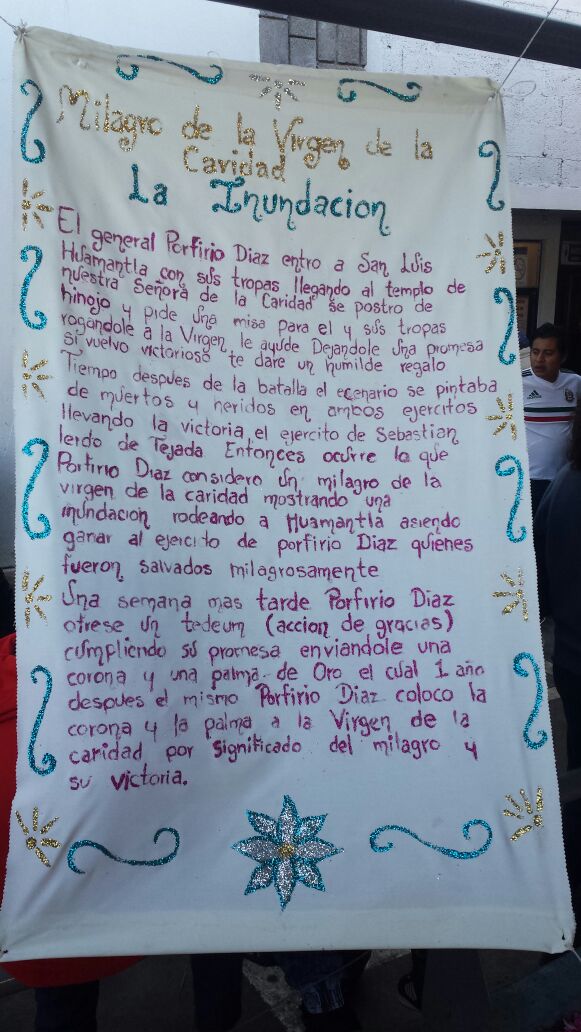 Milagro de la Virgen de la
Caridad
La Inundacion
El general Porfirio Diaz entro a San Luis
Huamantla con sus tropas llegando al templo de
nuestra Señora de la Caridad se postro de
hinojo y pide una misa para el y sus tropas
rogandole a la Virgen le ayude Dejandole una promesa
si vuelvo victorioso te dare un humilde regalo
Tiempo despues de la batalla el ecenario se pintaba
de muertos y heridos en ambos ejercitos
llevando la victoria el ejercito de Sebastian
lerdo de Tejada Entonces ocurre lo que
Porfirio Diaz considero un milagro de la
virgen de la caridad mostrando una
inundacion rodeando a Huamantla asiendo
ganar al ejercito de porfirio Diaz quienes
fueron salvados milagrosamente
Una semana mas tarde Porfirio Diaz
otrese un tedeum (accion de gracias)
cumpliendo su promesa enviandole una
corona y una palma de Oro el cual 1 año
despues el mismo Porfirio Diaz coloco la
corona y la palma a la Virgen de la
caridad por significado del milagro y
su victoria.